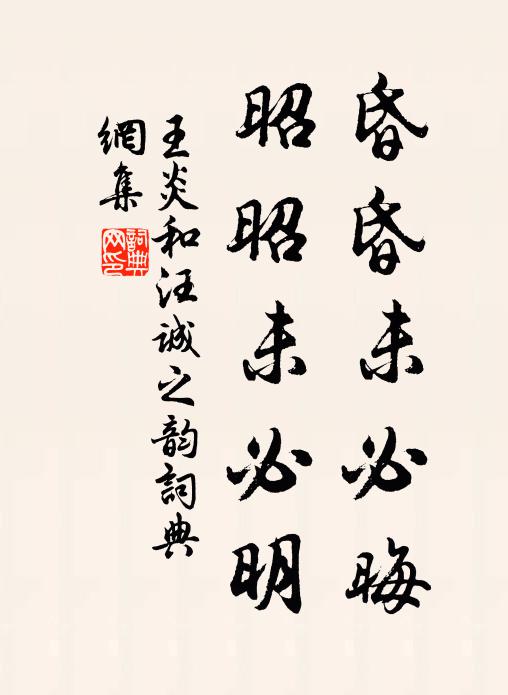 昏昏未必晦
昭昭未必明
王炎和汪誠之韵詞典
網集
詞典
网印